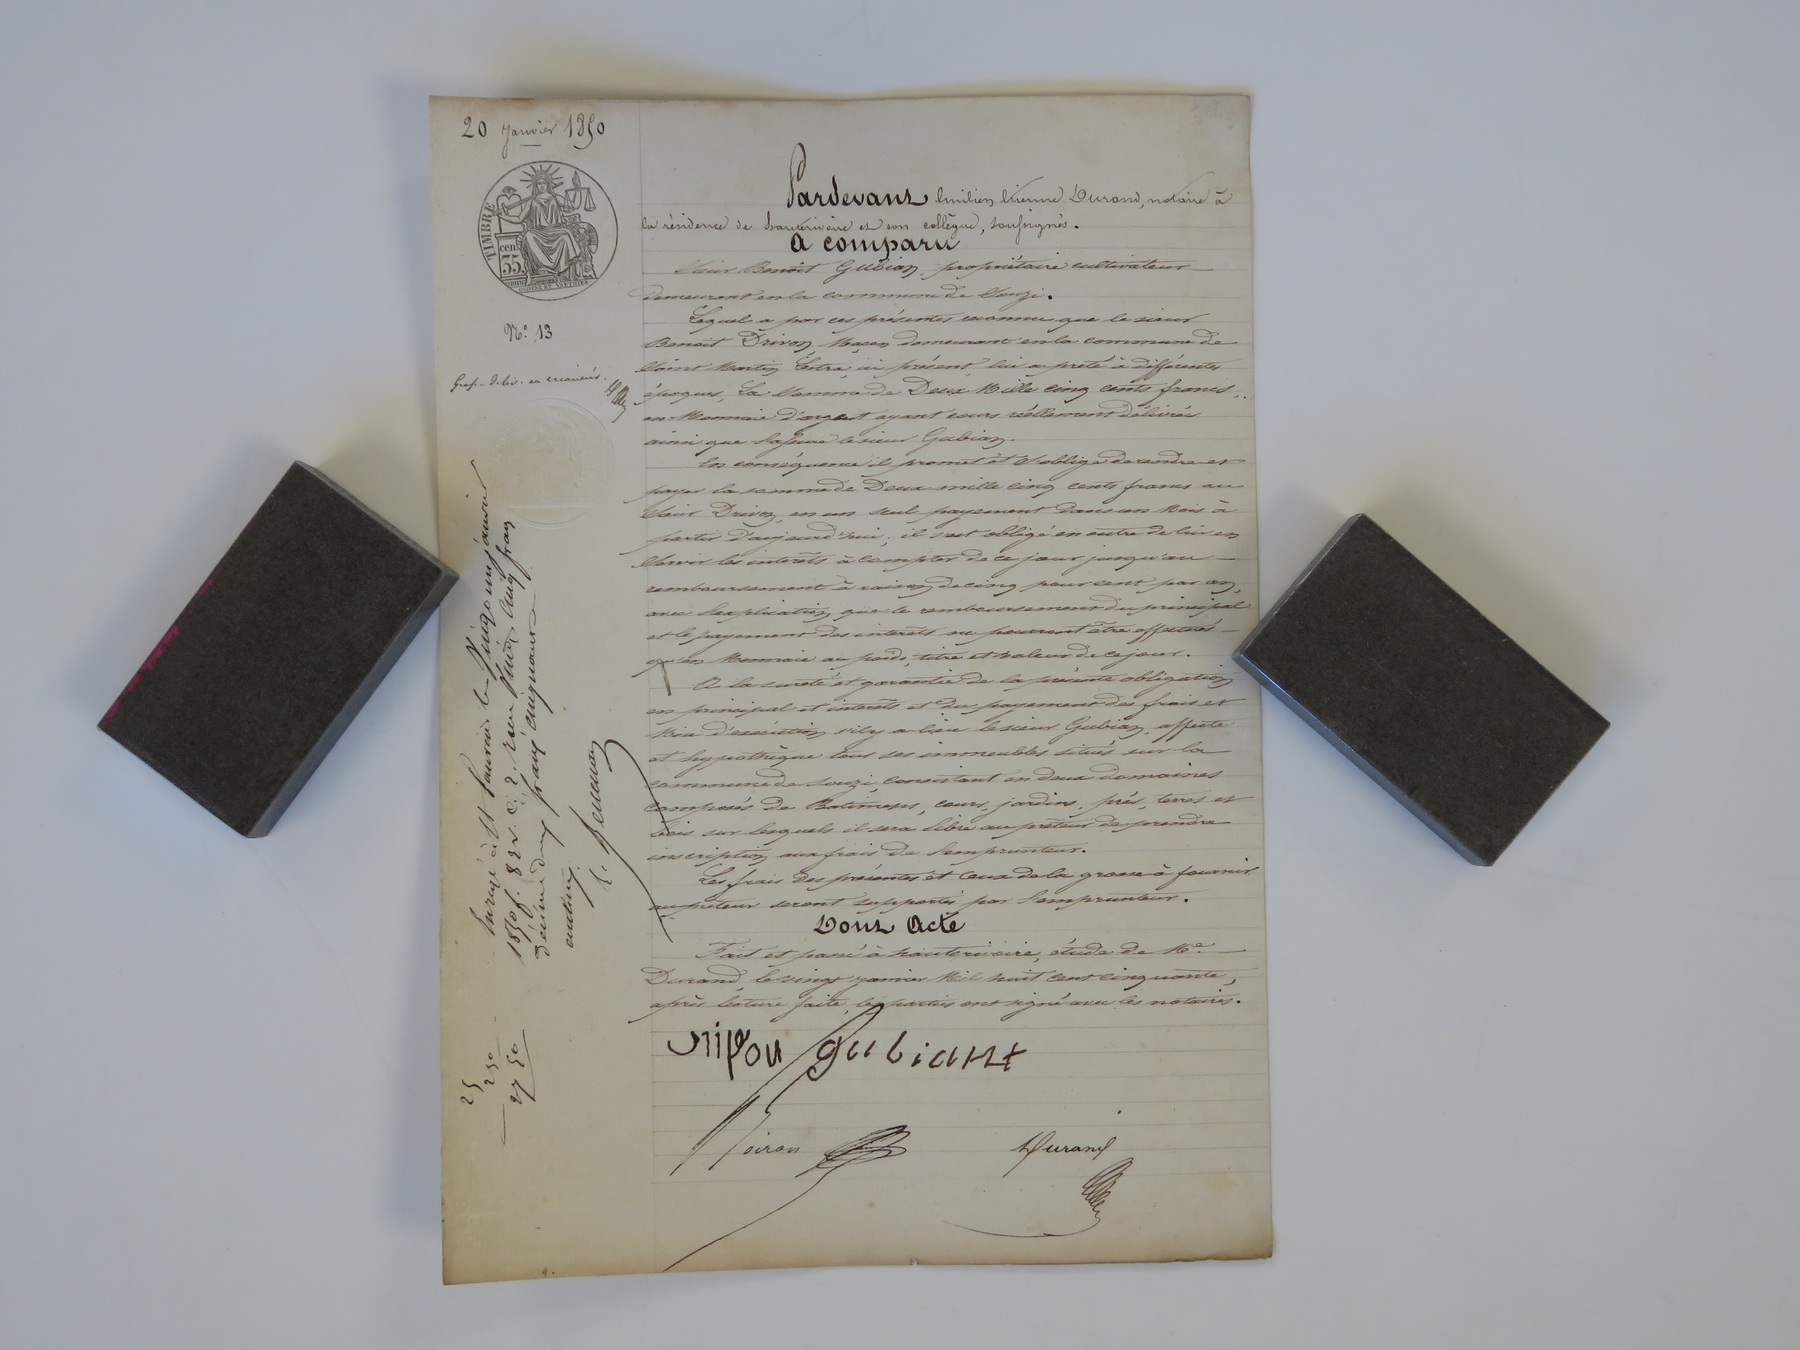 20 Janvier 1850
TIMBRE
35 cent
N° 13
Pardevant Emilien Etienne Durand, notaire à
la résidence de hauterivoire et son collègue, soussignés.
A comparu
Sieur Benoît Gubian, propriétaire cultivateur
demeurant en la commune de Souzi.
Lequel a par ces présentes reconnu que le sieur
Benoit Drivon Maçon demeurant en la commune de
Saint Martin Lestra, ici présent, lui a prêté à différentes
époques, La Somme de Deux Mille cinq cents francs,
en Monnaie d'argent ayant cours réellement délivrés
ainsi que l'assure le sieur Gubian.
En conséquence il promet et s'oblige de rendre et
payer la somme de Deux mille cinq cents francs au
Sieur Drivon, en un seul payement dans un Mois à
partir d'aujourd'hui; il s'est obligé en outre de lui en
Servir les intérêts à compter de ce jour jusqu'au
remboursement à raison de cinq pour cent par an,
avec l'explication que le remboursement du principal
et le payement des intérêts ne pourront être effectués
qu'en Monnaie au poids, titre et valeur de ce jour.
A la sureté et garantie de la présente obligation
en principal et intérêts et du payement des frais et
Mise d'exécution s'il y a lieu le sieur Gubian, affecte
et hypothèque tous ses immeubles situés sur la
commune de Souzi, consistant en deux domaines
composés de Batiments, cours, jardins, prés, terres et
bois sur lesquels il sera libre au prêteur de prendre
inscription aux frais de l'emprunteur.
Les frais des présentes et Ceux de la grosse à fournir
au prêteur seront supportés par l'emprunteur.
Dont Acte
Fait et passé à hauterivoire, étude de Me
Durand, le vingt janvier Mil huit cent cinquante,
après lecture faite, les parties ont signé avec les notaires.
Drivon gubiant
Noiron Durand
Enregé à St Laurent le vingt un janvier
1850 f. 82 v. c. 2. reçu vingt cinq francs
décime deux francs cinquante
centimes.
25
2 50
27 50